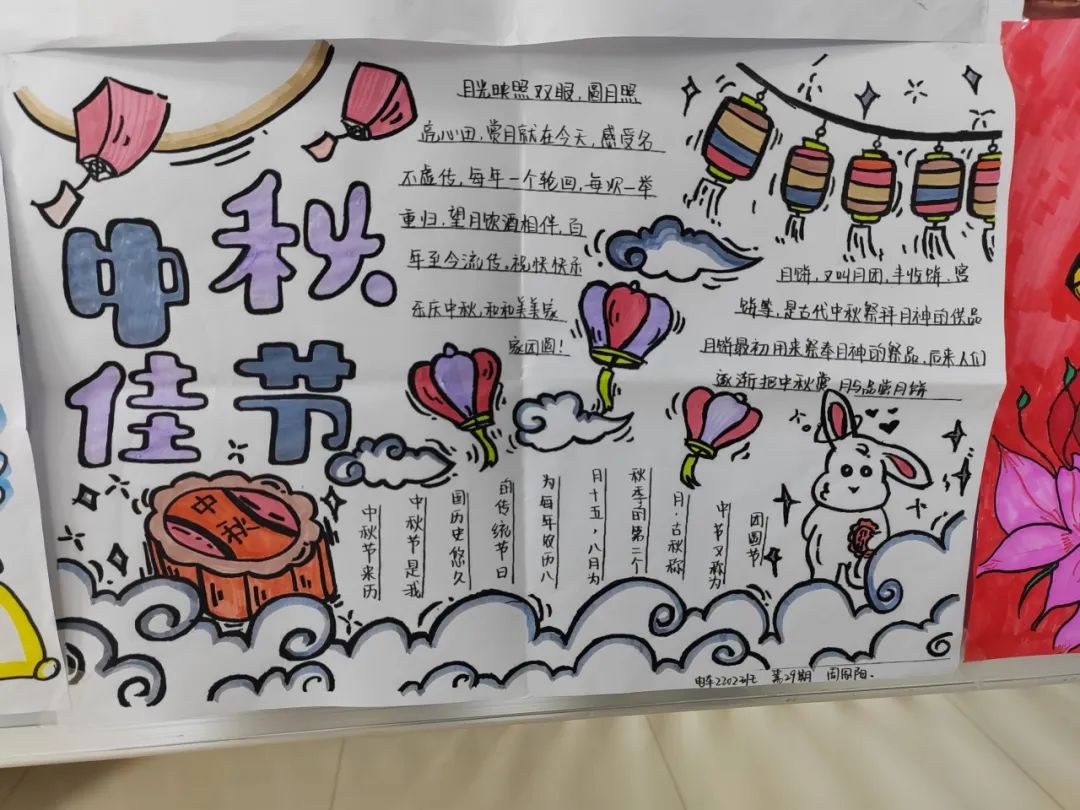 中秋
佳节
月光映照双眼,圆月照
亮心田,赏月就在今天,感受名
不虚传,每年一个轮回,每次一举
重归,望月饮酒相伴,百
年至今流传,祝快快乐
乐庆中秋,和和美美家
家团圆!
月饼,又叫月团,丰收饼,宫
饼等,是古代中秋祭拜月神的供品
月饼最初用来祭奉月神的祭品,后来人们
逐渐把中秋赏月与品尝月饼
中秋
中秋节来历
中秋节是我
国历史悠久
的传统节日
为每年农历八
月十五,八月为
秋季的第二个
月,古秋称
中节又称为
团圆节
电车2202班 第29期